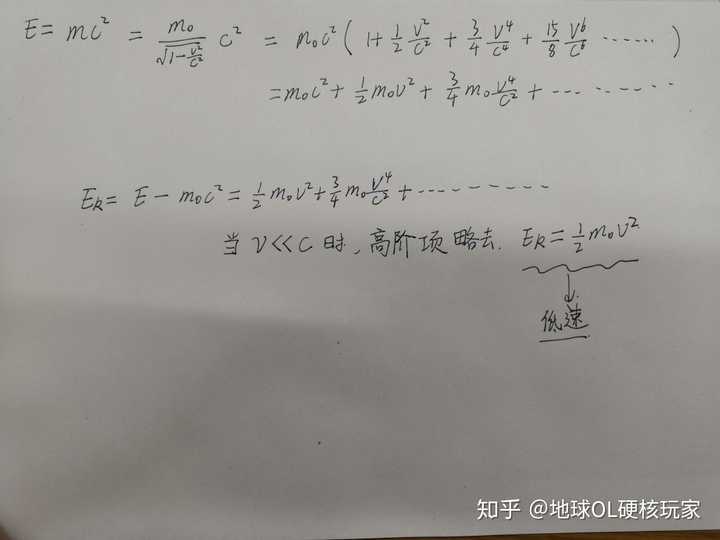 E = mc² = m₀/√(1-v²/c²) c² = m₀c² ( 1 + 1/2 v²/c² + 3/4 v⁴/c⁴ + 15/8 v⁶/c⁶ ...... )
= m₀c² + 1/2 m₀v² + 3/4 m₀ v⁴/c² + ...........
Eₖ = E - m₀c² = 1/2 m₀v² + 3/4 m₀ v⁴/c² + ...........
当 v << c 时, 高阶项略去. Eₖ = 1/2 m₀v²
低速
知乎 @地球OL硬核玩家